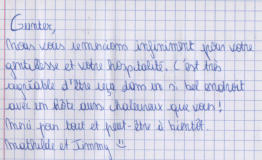 Gunter,
Nous vous remercions infiniment pour votre
gentillesse et votre hospitalité. C'est très
agréable d'être reçu dans un si bel endroit
avec un hôte aussi chaleureux que vous !
Merci pour tout et peut-être à bientôt.
Mathilde et Jimmy